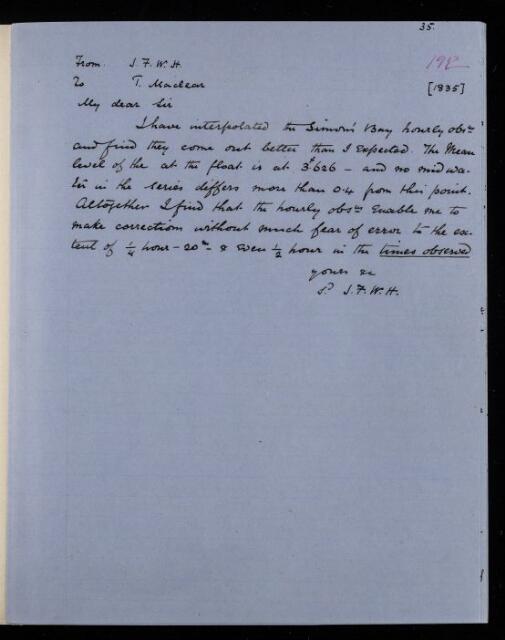 35.
192
[1835]
From J. F. W. H.
To T. Maclear
My dear Sir
I have interpolated the Simon's Bay hourly obsns
and find they come out better than I expected. The Mean
level of the at the float is at 3f.626 – and no mid wa-
ter in the series differs more than 0.4 from this point.
Altogether I find that the hourly obsns enable me to
make correction without much fear of error to the ex-
tent of 1/4 hour – 20m – & even 1/2 hour in the times observed
yours &c
Sd J. F. W. H.